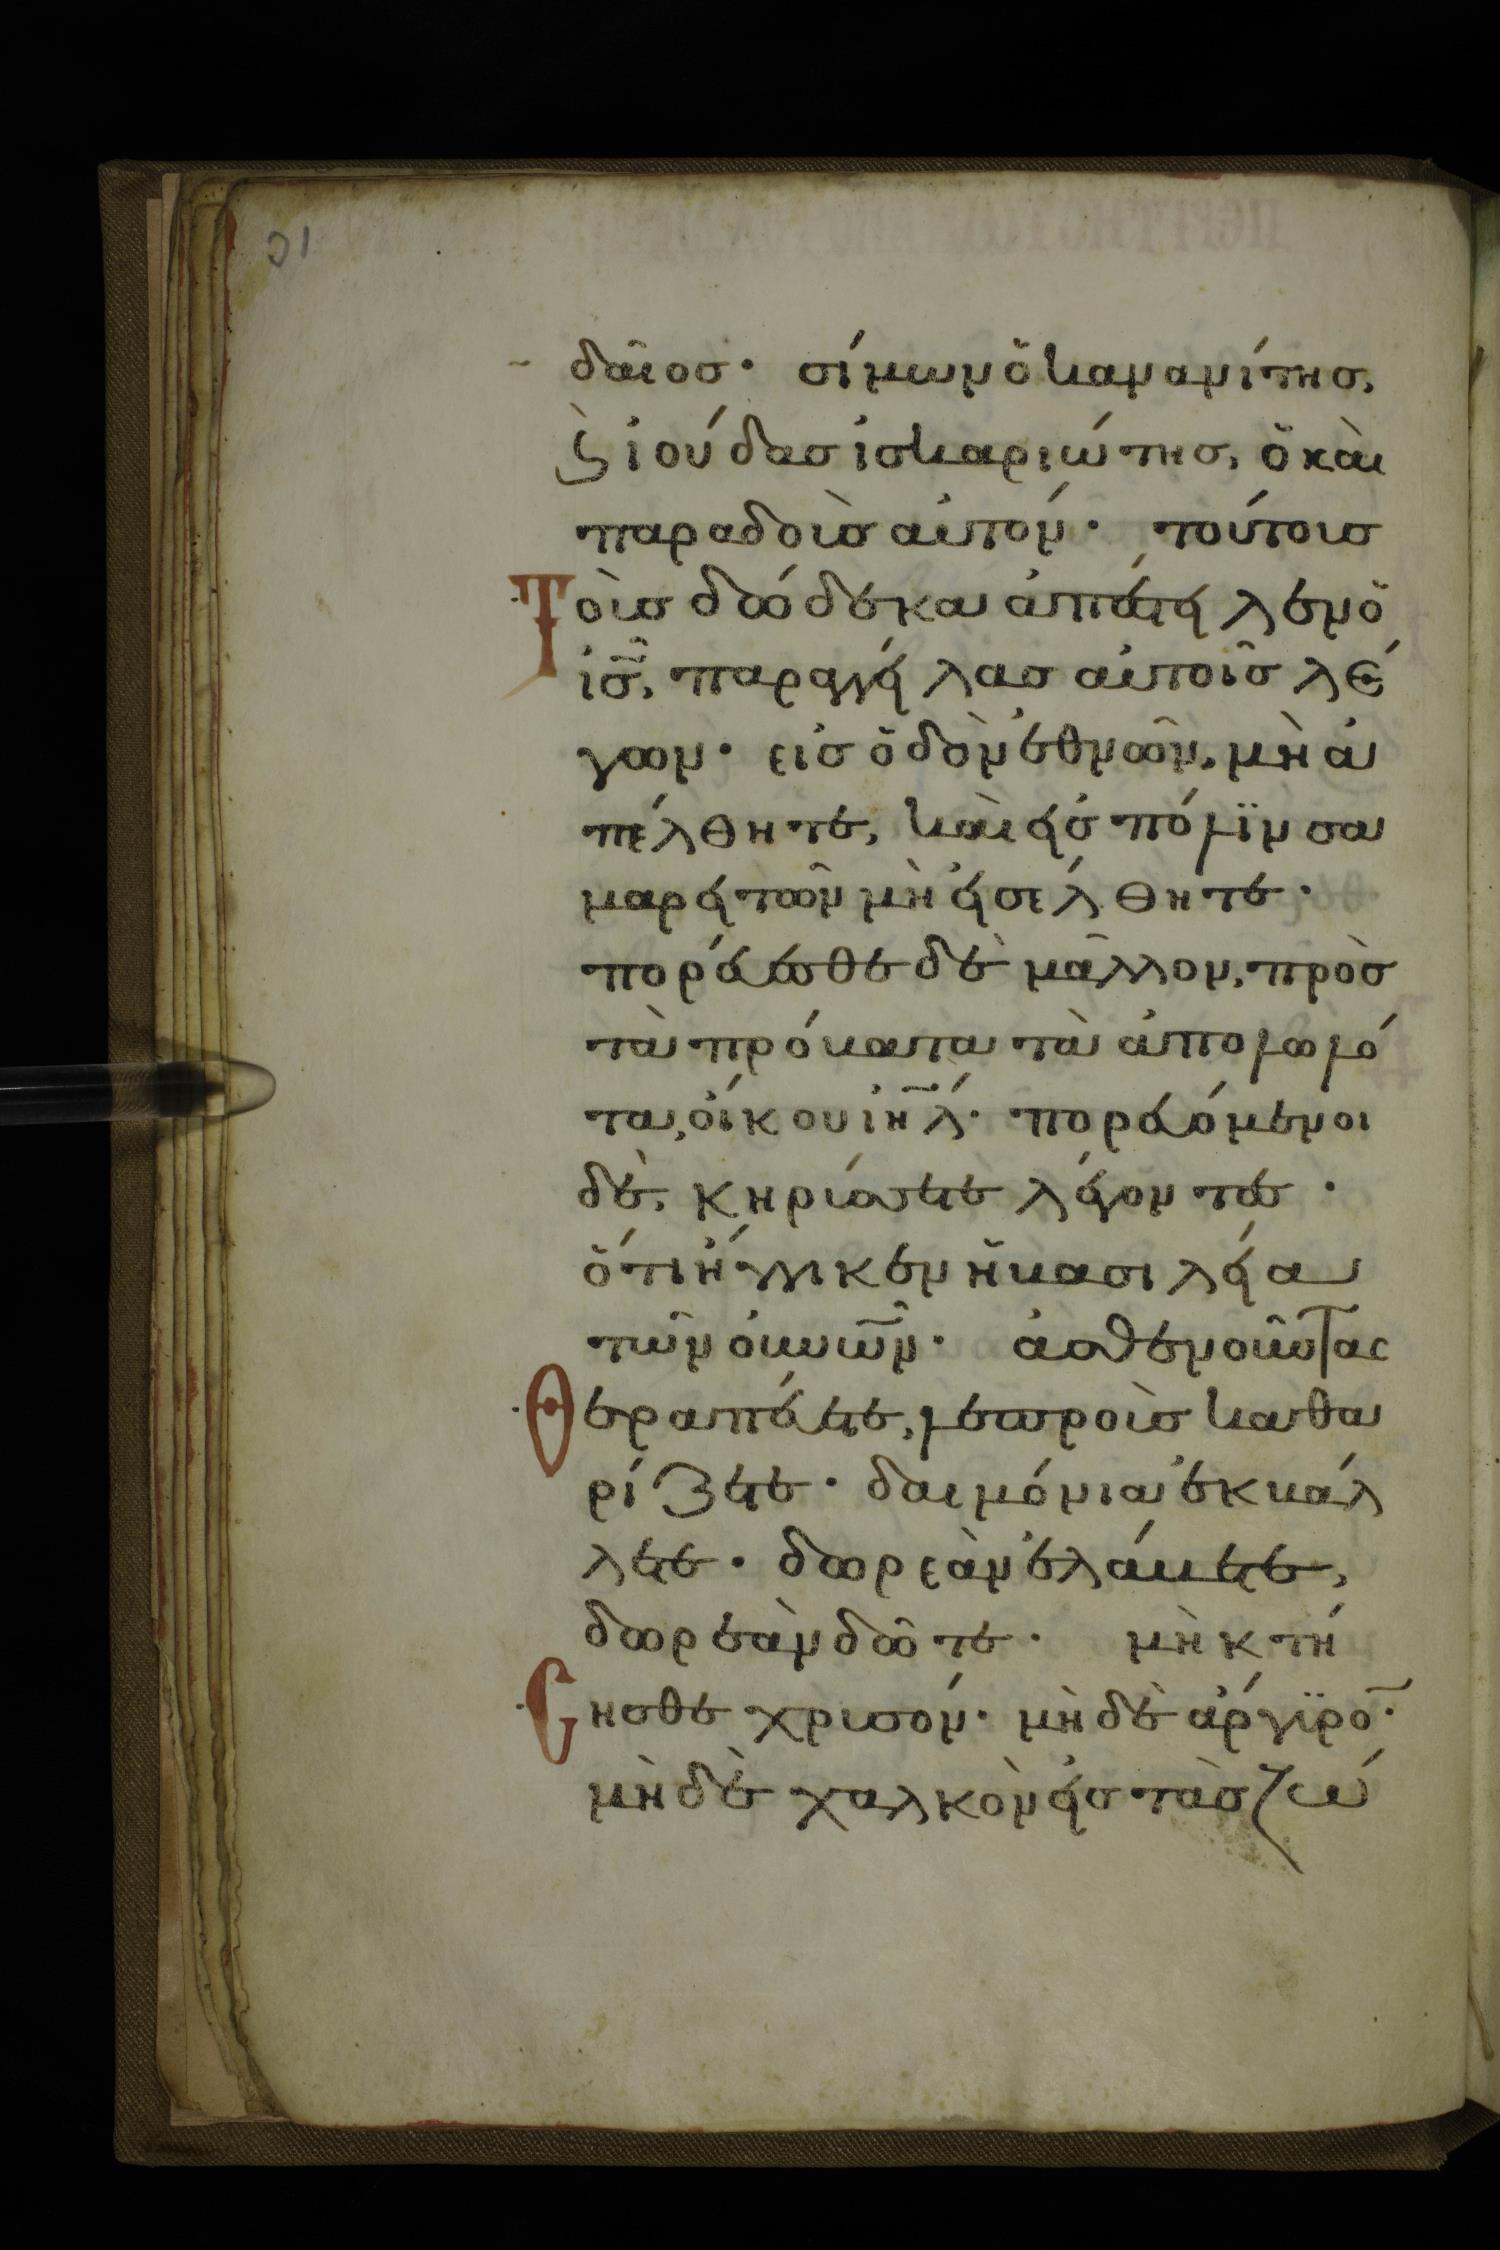 δαῖος· σίμων ὁ κανανίτης,
ϗ ἰούδας ἰσκαριώτης, ὁ καὶ
παραδοὺς αὐτόν· τούτους
Τοὺς δώδεκα ἀπέστειλεν ὁ
ἰ̅ς̅, παραγγείλας αὐτοῖς λέ
γων· εἰς ὁδὸν ἐθνῶν, μὴ ἀ
πέλθητε, καὶ εἰς πόλϊν σα
μαρειτῶν μὴ εἰσέλθητε·
πορεύεσθε δὲ μᾶλλον, πρὸς
τὰ πρόβατα τὰ ἀπολωλό
τα, οἴκου ἰη̅λ̅· πορευόμενοι
δὲ, κηρύσσετε λέγοντες·
ὅτι ἤγγικεν ἡ βασιλεία
τῶν οὐν̅ῶν̅· ἀσθενοῦντας
Θεραπεύετε, λεπροὺς καθα
ρίζετε· δαιμόνια ἐκβάλ
λετε· δωρεὰν ἐλάβετε,
δωρεὰν δῶτε· μὴ κτή
Σησθε χρυσόν· μὴ δὲ ἄργϋρο̅·
μὴ δὲ χαλκὸν εἰς τὰς ζώ